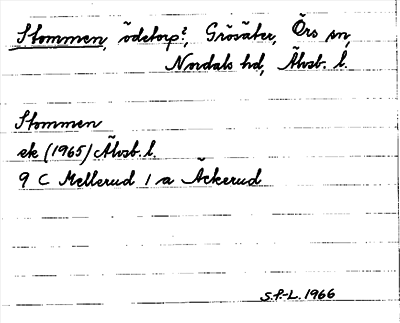 Stommen, ödetorp?, Grösäter, Örs sn,
Nordals hd, Älvsb. l.
Stommen
ek (1965) Älvsb. l.
9 C Mellerud 1 a Äckerud
S.P-L. 1966